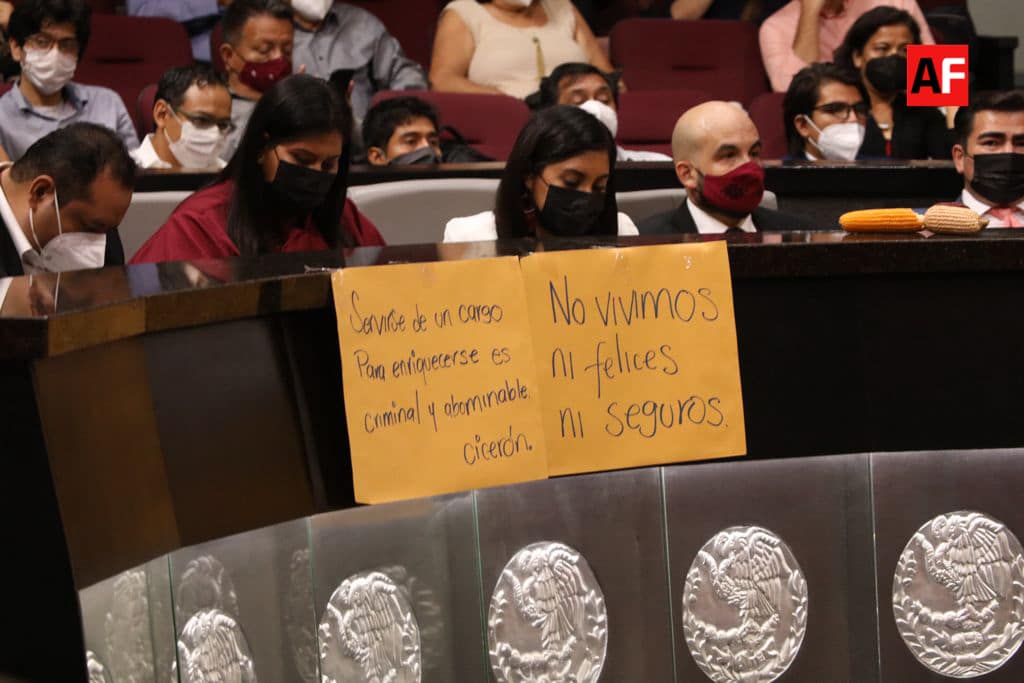 AF
Servirse de un cargo
Para enriquecerse es
criminal y abominable.
cicerón.
No vivimos
ni felices
ni seguros.